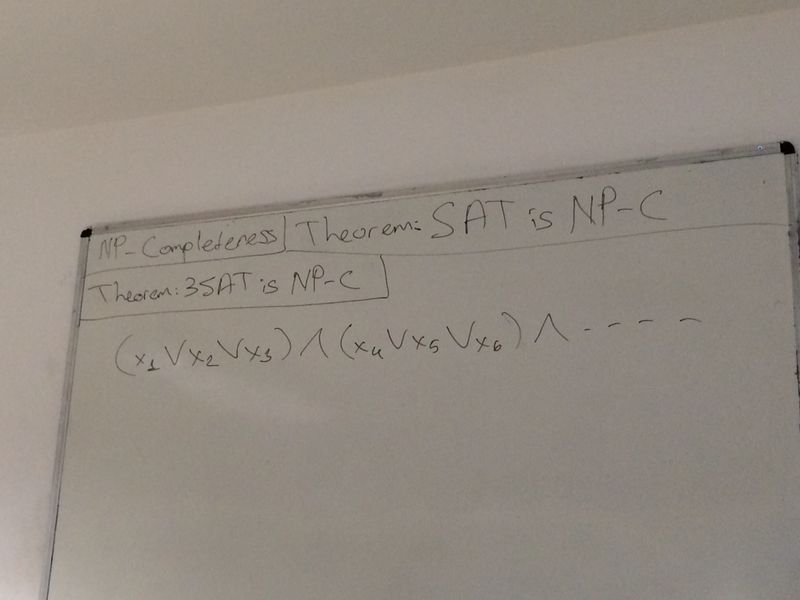 NP-Completeness Theorem: SAT is NP-C
Theorem: 3SAT is NP-C
(x₁ ∨ x₂ ∨ x₃) ∧ (x₄ ∨ x₅ ∨ x₆) ∧ - - - -